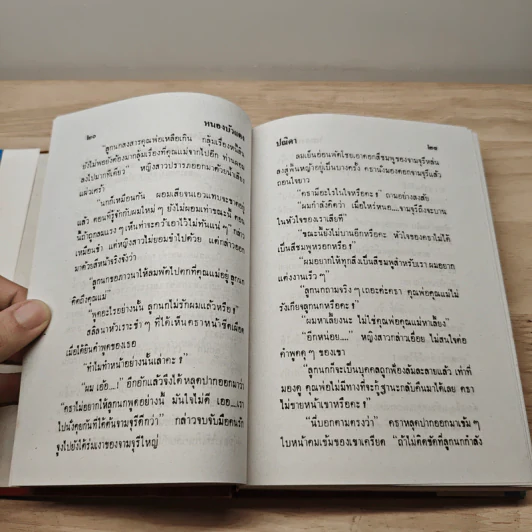 ๒๐
หนองบัวแดง
"ลูกนกสงสารคุณพ่อเหลือเกิน กลุ้มเรื่องหนี้สิน
ยังไม่พอยังต้องมากลุ้มเรื่องที่คุณแม่จากไปอีก ท่านผอม
ลงไปมากทีเดียว" หญิงสาวปรารภออกมาด้วยน้ำเสียง
แผ่วเศร้า
"นกก็เหมือนกัน ผอมเสียจนเอวแทบจะขาดอยู่
แล้ว ตอนที่รู้จักกับผมใหม่ ๆ ยังไม่ผอมเท่าขณะนี้ ตอน
มาด้วยสีหน้าจริงจังว่า
"ลูกนกขอภาวนาให้ลมพัดไปตกที่คุณแม่อยู่ ลูกนก
คิดถึงคุณแม่"
"พูดอะไรอย่างนั้น ลูกนกไม่รักผมแล้วหรือฮะ"
เมื่อได้ยินคำพูดของเธอ
"ทำไมทำหน้าอย่างนั้นเล่าคะ ฮะ"
"ผม เอ้อ....!" อึกอักแล้วจึงได้หลุดปากออกมาว่า
"คราไม่อยากให้ลูกนกพูดอย่างนี้ มันใจไม่ดี เออ....เรา
ไปนั่งคุยกันที่ใต้ต้นจามจุรีดีกว่า" กล่าวจบจับมือคนรัก
จูงไปยังใต้ร่มเงาของจามจุรีใหญ่
ปณิดา
๒๑
ลมเย็นอ่อนพัดโชยเอาดอกสีชมพูของจามจุรีหล่น
ลงสู่พื้นหญ้าอยู่เป็นบางครั้ง ครานั่งมองดอกจามจุรีแล้ว
ถอนใจยาว
"ครามีอะไรในใจหรือคะ" ถามอย่างสงสัย
"ผมกำลังคิดว่า เมื่อไหร่หนอ....จามจุรีถึงจะบาน
ในหัวใจของเราเสียที"
"ขณะนี้ยังไม่บานอีกหรือคะ หัวใจของคราไม่ได้
เป็นสีชมพูหรอกหรือ"
"ผมอยากให้ทุกสิ่งเป็นสีชมพูสำหรับเรา ผมอยาก
แต่งงานเร็ว ๆ"
"ลูกนกถามจริง ๆ เถอะค่ะครา คุณพ่อคุณแม่ไม่
รังเกียจลูกนกหรือคะ"
"ผมหาเลี้ยงนะ ไม่ใช่คุณพ่อคุณแม่หาเลี้ยง"
"อีกหน่อย...." หญิงสาวกล่าวเอื่อย ไม่สนใจต่อ
คำพูดดุ ๆ ของเขา
"ลูกนกก็จะเป็นบุคคลถูกฟ้องล้มละลายแล้ว เท่าที่
มองดู คุณพ่อไม่มีทางที่จะกู้ฐานะกลับคืนมาได้เลย ครา
ไม่ขายหน้าเขาหรือคะ"
"นี่บอกตามตรงว่า" คราหลุดปากออกมาเข้ม ๆ
ใบหน้าคมเข้มของเขาเครียด "ถ้าไม่คิดขัดที่ลูกนกกำลัง